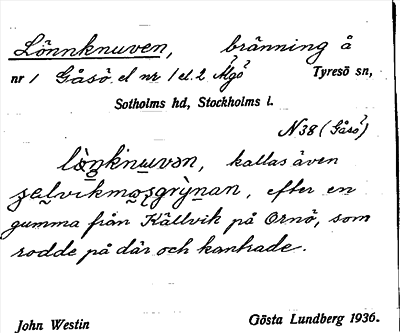 Lönnknuven, bränning å
nr 1 Gåsö el nr 1 el. 2 Ägö Tyresö sn,
Sotholms hd, Stockholms l.
N38 (Gåsö)
kallas även
efter en
gumma från Källvik på Ornö, som
rodde på där och kantrade.
John Westin Gösta Lundberg 1936.